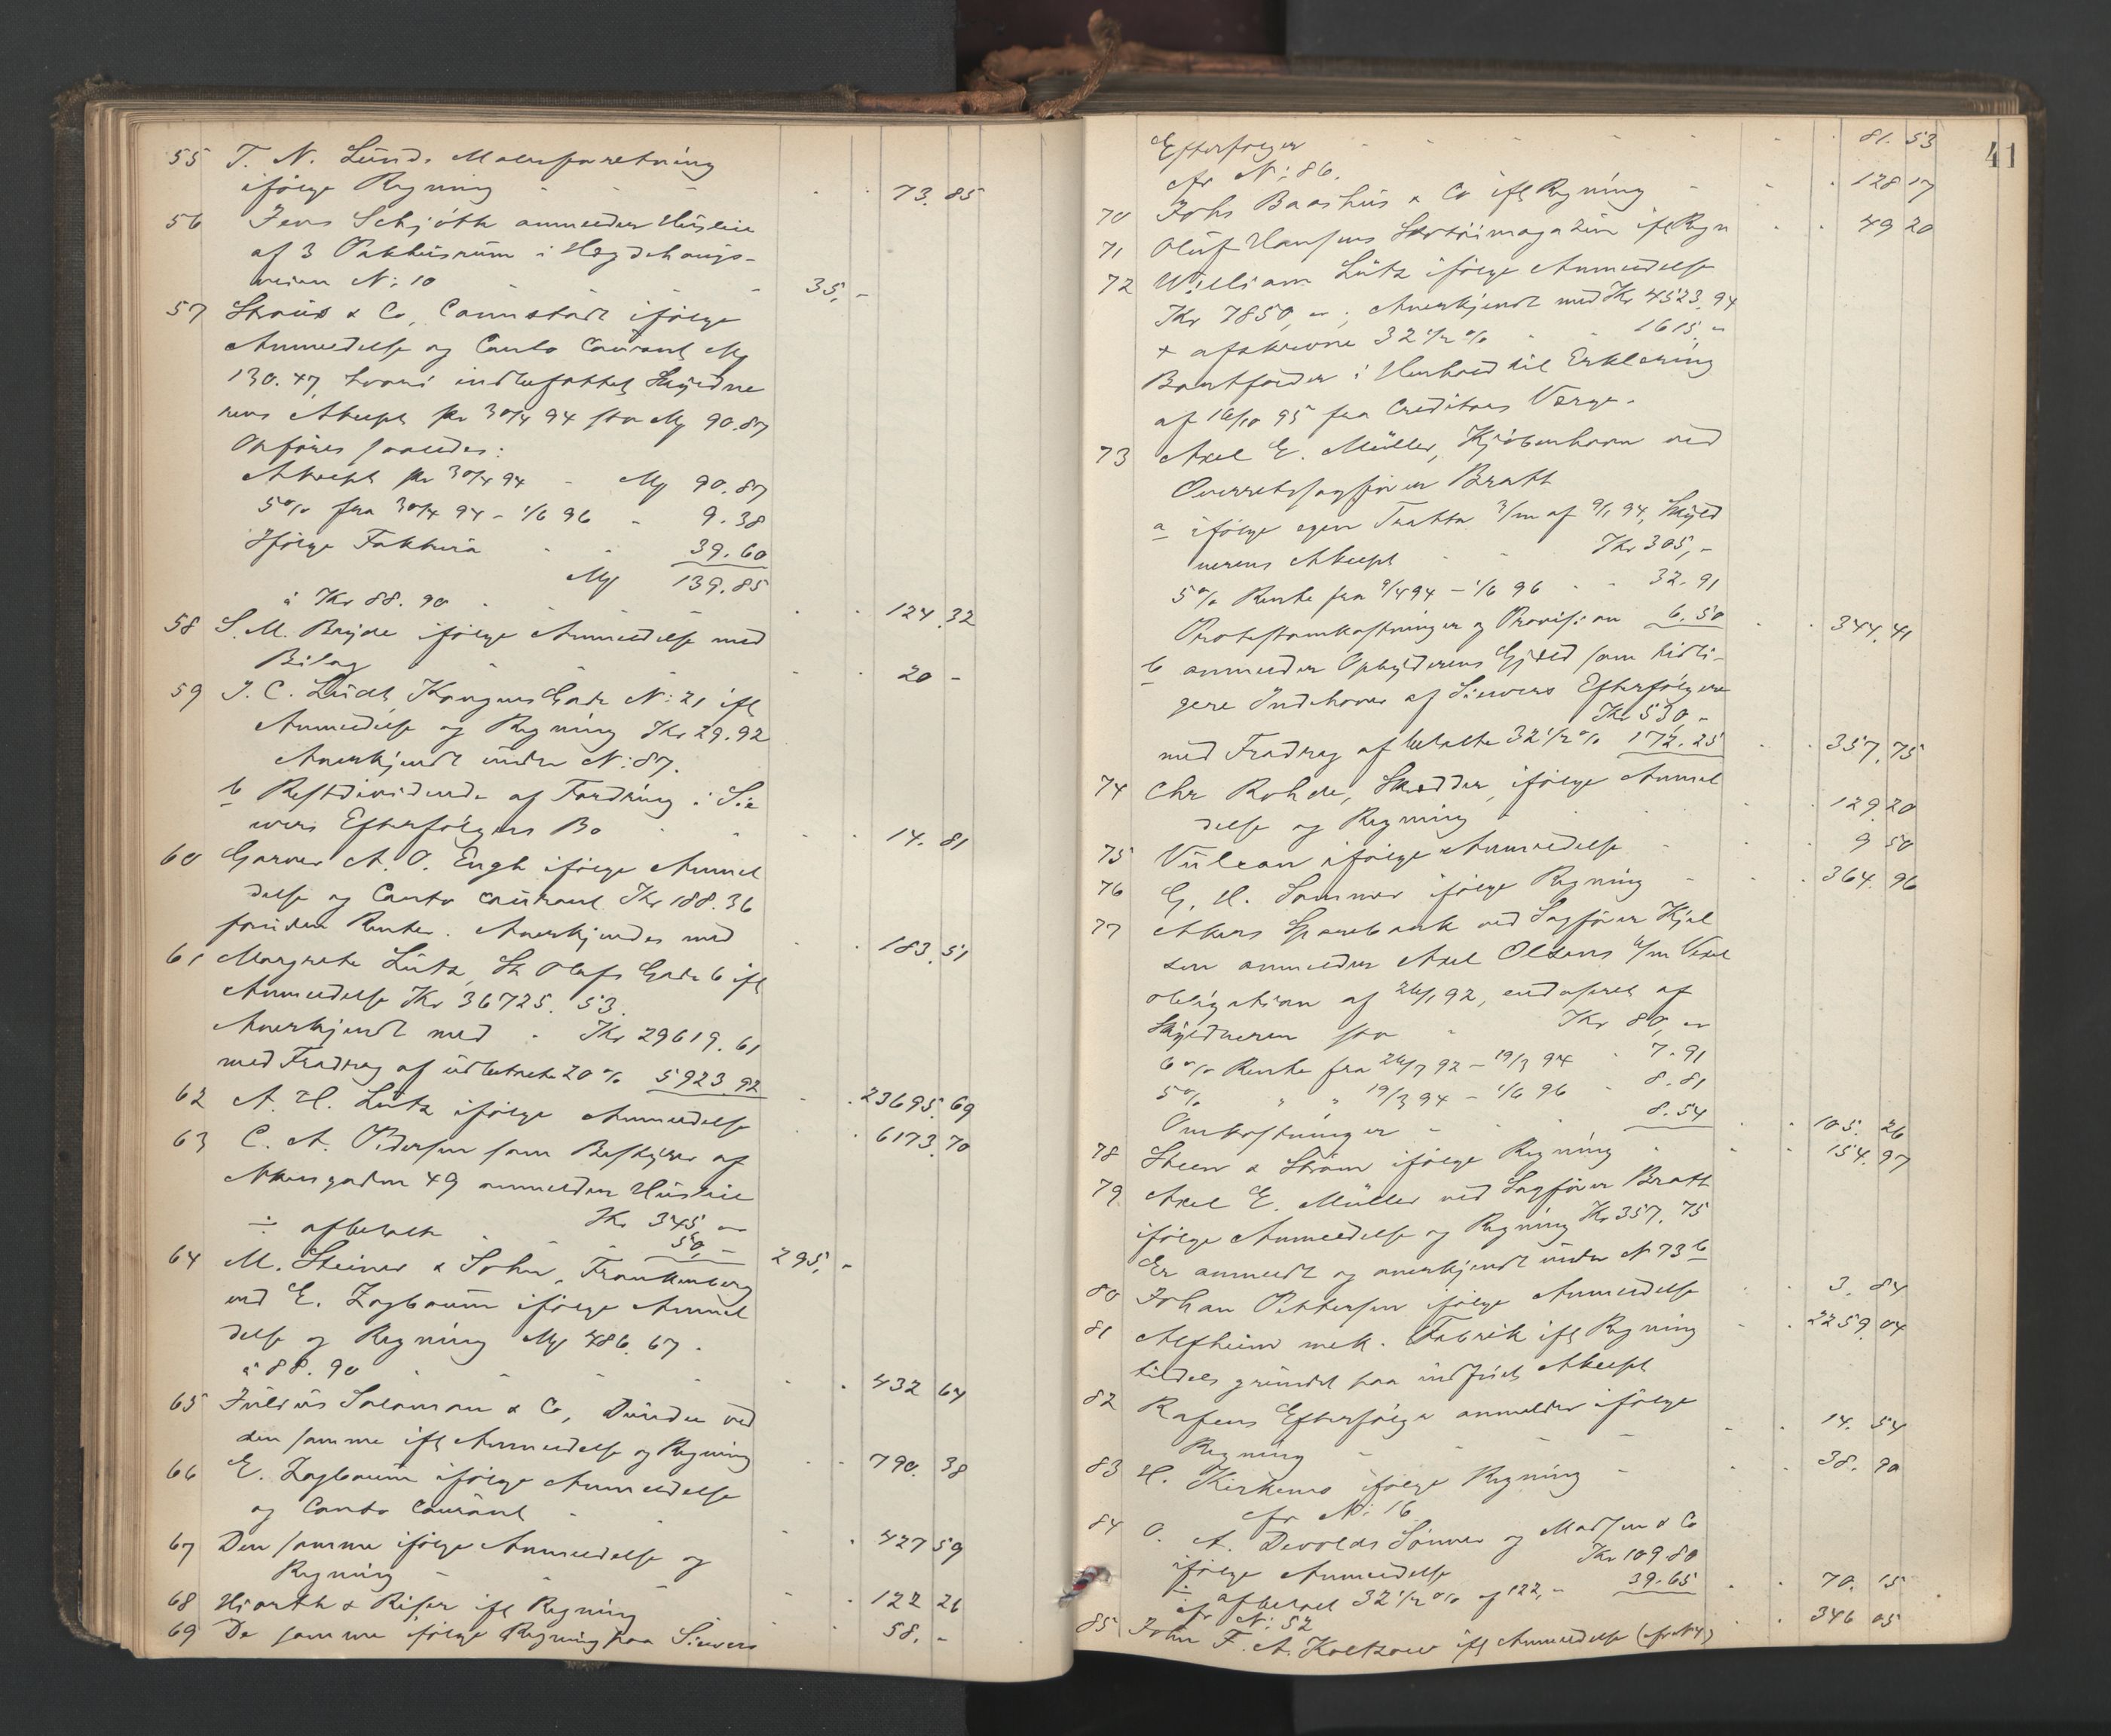 55 T. N. Lund. Malerforretning
ifölge Regning 73. 85
56 Jens Schjöth anmelder Husleie
af 3 Pakhusrum i Hægdehaugs-
veien N: 10 35, -
57 Straus & Co, Cannstadt ifölge
Anmeldelse og Conto Courant Mk
130. 47, hvori indbefattet Skyldne
rens Akcept pr 30/4 94 stor Mk 90.87
Opföres saaledes:
Akcept pr 30/4 94 - Mk 90. 87
5% fra 30/4 94 - 1/6 96 - 9. 38
Ifölge Faktura 39. 60
Mk 139. 85
à Kr 88. 90 124. 32
58 S. M. Bryde ifölge Anmeldelse med
Bilag 20 -
59 J. C. Lundt, Kongens Gade N: 21 ifl
Anmeldelse og Regning Kr 29. 92
Anerkjendt under N: 87.
b Restdividende af Fordring i Sie
wers Efterfölgers Bo 14. 81
60 Garver A. O. Engh ifölge Anmel
delse og Conto courant Kr 188. 36
foruden Renter. Anerkjendes med 183. 51
61 Margrethe Lutz, St Olafs Gade 6 ifl
Anmeldelse Kr 36725. 53.
Anerkjendt med - Kr 29619. 61
med Fradrag af udbetalte 20% 5923. 92 23695. 69
62 A. H. Lutz ifölge Anmeldelse 6173. 70
63 C. A. Pedersen som Bestyrer af
Akersgaden 49 anmelder Husleie
Kr 345, -
÷ afbetalt 50, - 295, -
64 M. Steiner & Sohn, Frankenberg
ved E. Zagbaum ifölge Anmel
delse og Regning Mk 486. 67.
à 88. 90 432 64
65 Julius Salomon & Co, Dundee ved
den samme ifl Anmeldelse og Regning 790. 38
66 E. Zagbaum ifölge Anmeldelse
og Conto Courant 427 59
67 Den samme ifölge Anmeldelse og
Regning 122 26
68 Hiorth & Riser ifl Regning 58. -
69 De samme ifölge Regning paa Siewers
41
Efterfolger 81. 53
cfr N: 86.
70 Johs Baashus & Co ifl Regning 128 17
71 Oluf Hansens Skotöimagazin ifl Regn 49 20
72 William Lutz ifölge Anmeldelse
Kr 7850, -; Anerkjendt med Kr 4523. 94
+ afskrevne 32 1/2 % 1615. -
Bortfalder i Henhold til Erklæring
af 16/10 95 fra Creditors Værge.
73 Axel E. Müller, Kjöbenhavn ved
Overretssagförer Bratt
a ifölge egen Tratta 3/m af 9/1 94, Skyld
nerens Akcept Kr 305, -
5% Rente fra 9/4 94 - 1/6 96 32. 91
Protestomkostninger og Provision 6. 50 344. 41
b anmelder Opbyderens Gjæld som tidli-
gere Indehaver af Siewers Efterfölgere
Kr 530, -
med Fradrag af betalte 32 1/2 % 172. 25 357. 75
74 Chr Rohde, Skrædder, ifölge Anmel
delse og Regning 129. 20
75 Vulcan ifölge Anmeldelse 9 50
76 G. H. Sommer ifölge Regning 364. 96
77 Akers Sparebank ved Sagförer Kjel
sen anmelder Axel Olsens 6/m Vexel
obligation af 26/1 92, endosseret af
Skyldneren stor Kr 80, -
6% Rente fra 26/7 92 - 19/3 94 7. 91
5% " " 19/3 94 - 1/6 96 8. 81
Omkostninger 8. 54 105. 26
78 Steen & Ström ifölge Regning 154. 97
79 Axel E. Müller ved Sagförer Bratt
ifölge Anmeldelse og Regning Kr 357. 75
Er anmeldt og anerkjendt under N 73 b
80 Johan Pettersen ifölge Anmeldelse 3. 84
81 Alfheim mek. Fabrik ifl Regning 2259. 04
tildels grundet paa indfriet Akcept
82 Rafens Efterfölger anmelder ifölge
Regning 14. 54
83 H. Kirkemo ifölge Regning 38. 90
cfr N: 16
84 O. A. Devolds Sönner og Madsen & Co
ifölge Anmeldelse Kr 109. 80
÷ afbetalt 32 1/2 % af 122, - 39. 65 70. 15
cfr N: 52
85 John F. A. Koltzow ifl Anmeldelse (cfr N 4) 346 05